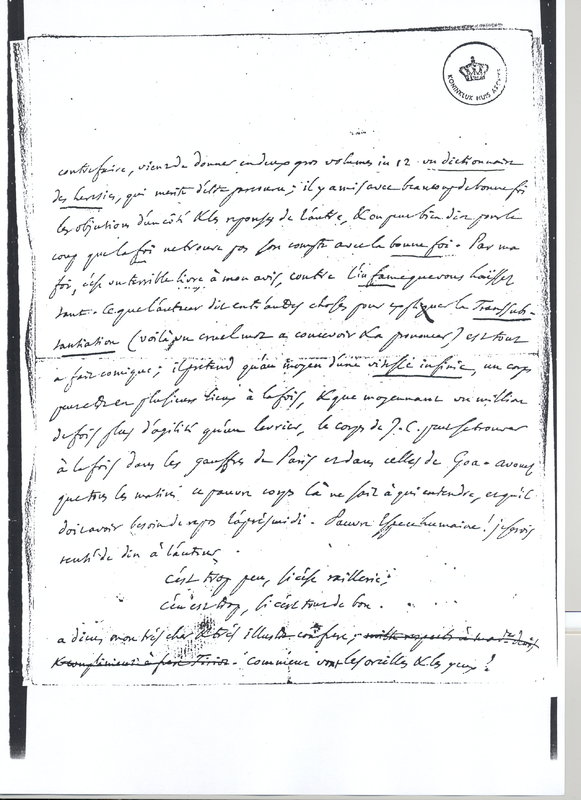 KONINKLIJK HUIS ARCHIEF
contrefaire, vient de donner en deux gros volumes in 12 un dictionnaire
des heresies, qui merite d'etre parcouru; il y a mis avec beaucoup de bonne foi
les objections d'un cité & les reponses de l'autre, & on peut bien dire pour le
coup que la foi ne trouve pas son compte avec la bonne foi. Par ma
foi, c'est un terrible livre à mon avis, contre l'infame que vous haissez
tant. Ce que l'auteur dit entr'autres choses pour expliquer la Transsub-
stantiation (voilà un cruel mot a concevoir & a prononcer) est tout
a fait comique; il pretend qu'au moyen d'une vitesse infinie, un corps
peut etre en plusieurs lieux à la fois, & que moyennant un million
de fois plus d'agilité qu'un levrier, le corps de J. C. peut se trouver
à la fois dans les gauffres de Paris et dans celles de Goa. avouez
que tous les matins ce pauvre corps là ne sait à qui entendre, et qu'il
doit avoir besoin de repos l'après midi. Pauvre Espece humaine! je serois
tenté de dire à l'auteur,
c'est trop peu, si c'est raillerie;
c'en est trop, si c'est tout de bon.
a dieu, mon très cher & très illustre confrere, mille respects à made Denis
& compliment à frere Tiriot. comment vont les oreilles & les yeux?